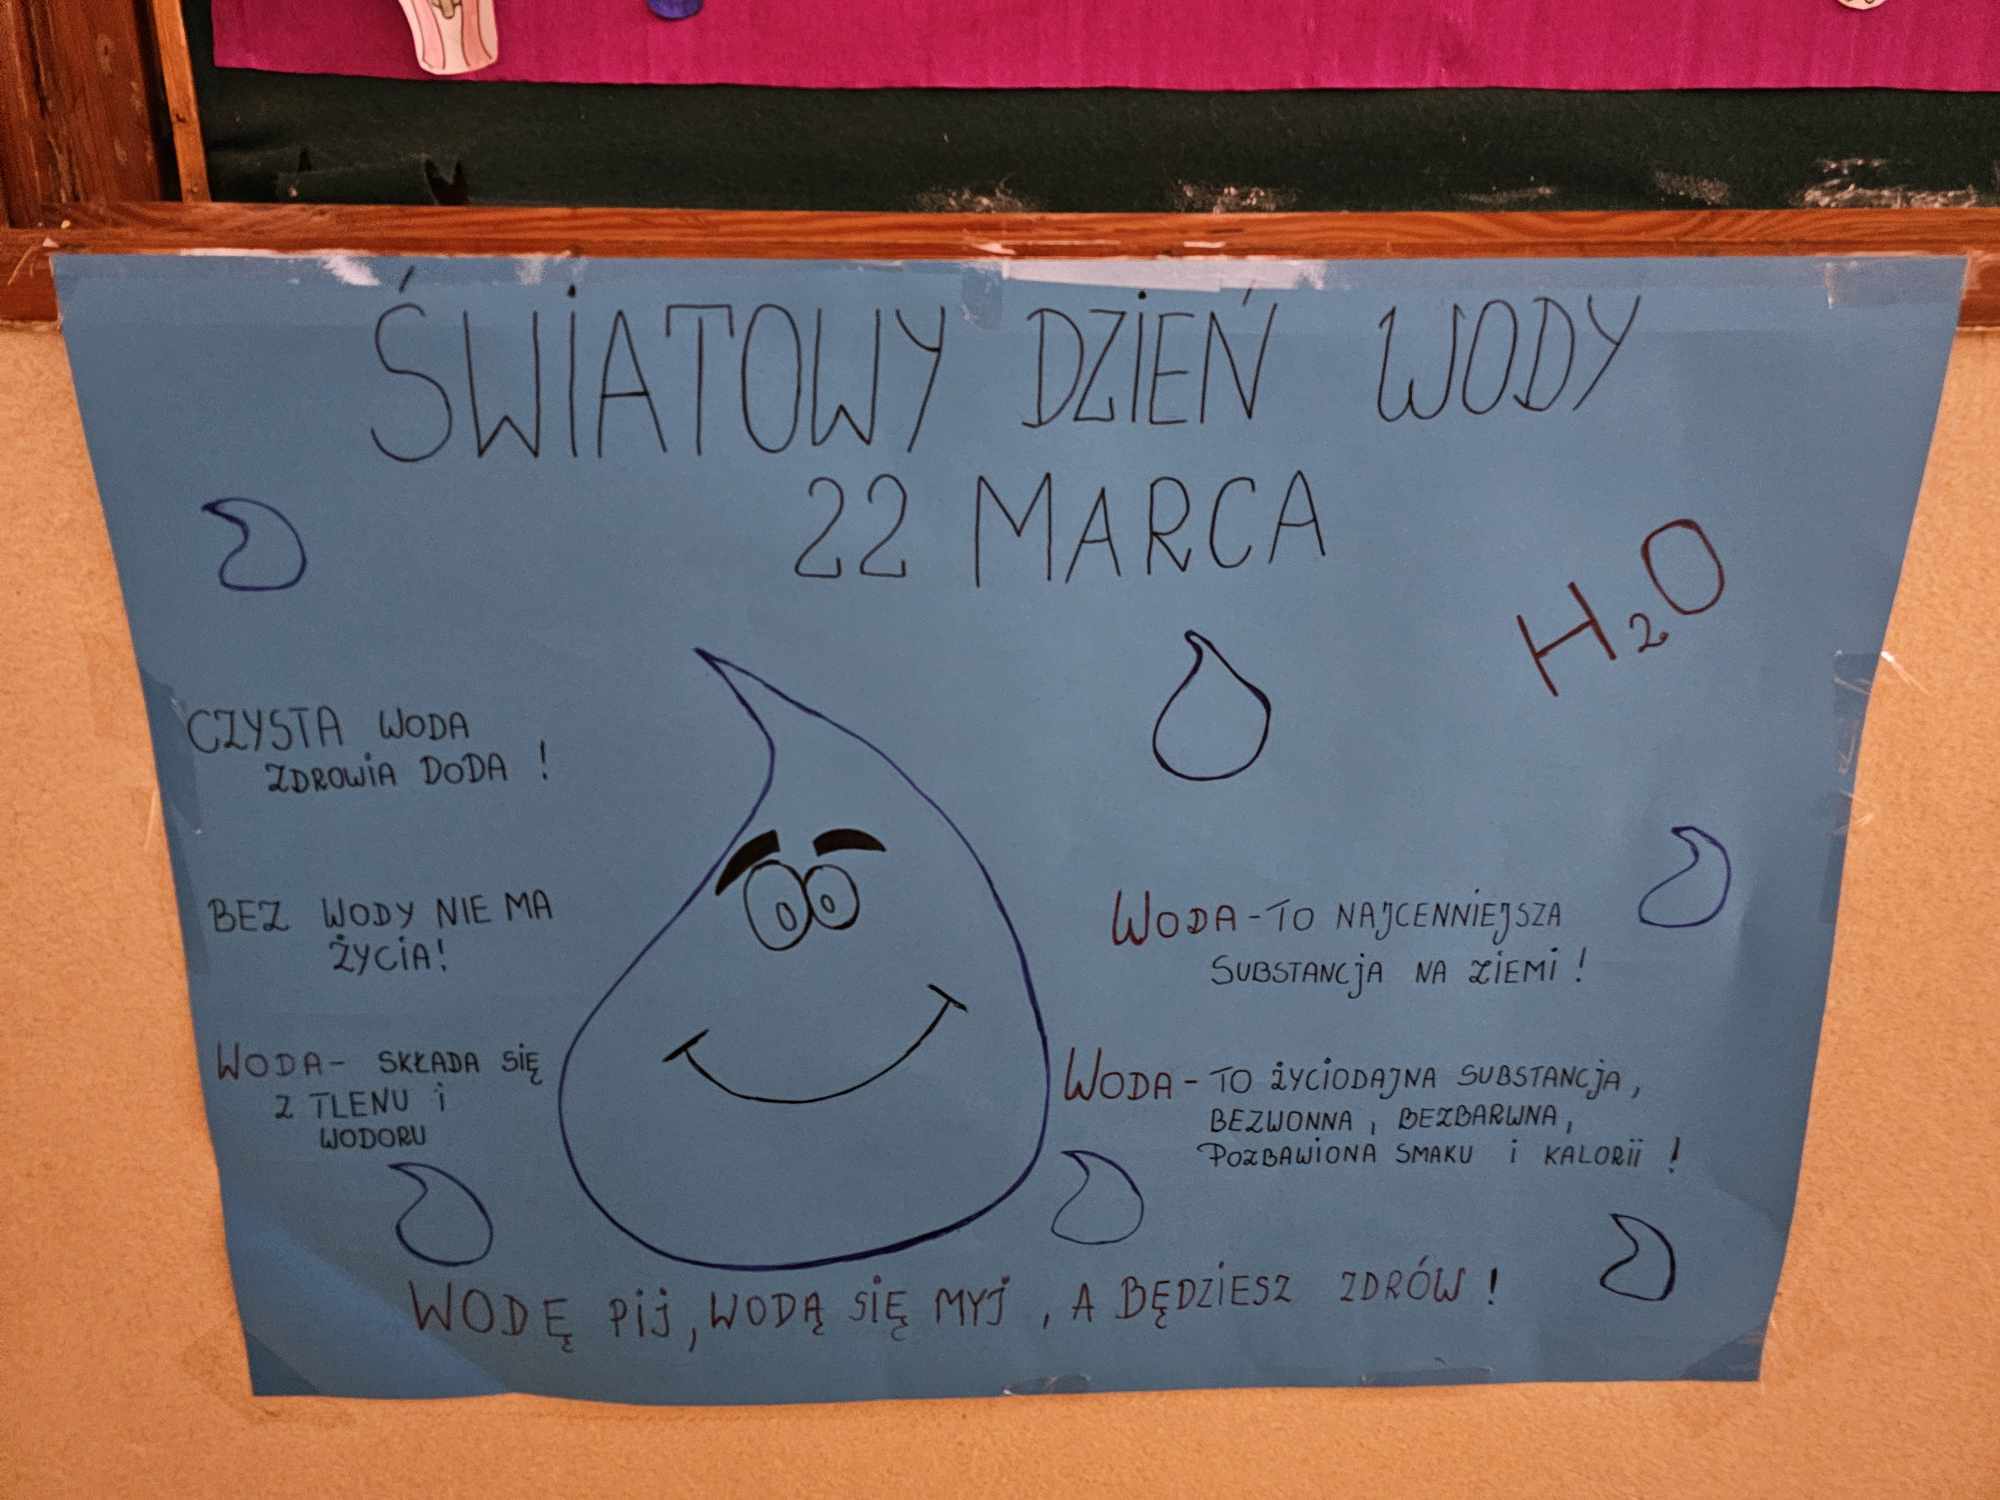 ŚWIATOWY DZIEŃ WODY
22 MARCA
H2O
CZYSTA WODA
ZDROWIA DODA !
BEZ WODY NIE MA
ŻYCIA!
WODA - SKŁADA SIĘ
Z TLENU I
WODORU
WODA - TO NAJCENNIEJSZA
SUBSTANCJA NA ZIEMI !
WODA - TO ŻYCIODAJNA SUBSTANCJA,
BEZWONNA, BEZBARWNA,
POZBAWIONA SMAKU I KALORII !
WODĘ PIJ, WODĄ SIĘ MYJ, A BĘDZIESZ ZDRÓW !